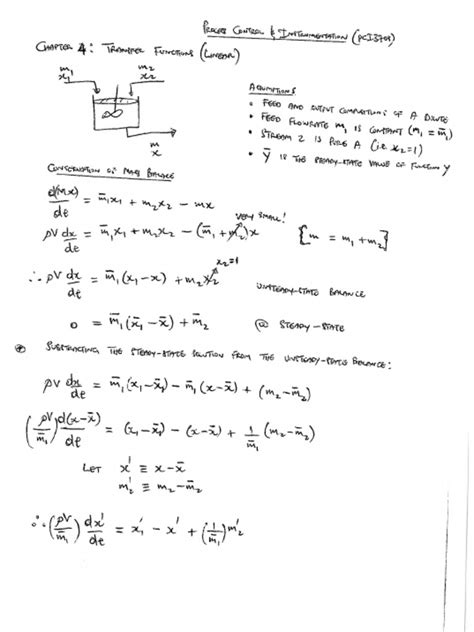 PROCESS CONTROL & INSTRUMENTATION (PCI3701)
CHAPTER 4: TRANSFER FUNCTIONS (LINEAR)
m₁
x₁
m₂
x₂
m
x
ASSUMPTIONS
• FEED AND OUTPUT COMPOSITIONS OF A DILUTE
• FEED FLOWRATE m₁ IS CONSTANT (m₁ = m̄₁)
• STREAM 2 IS PURE A (i.e. x₂=1)
• Ȳ IS THE STEADY-STATE VALUE OF FUNCTION Y
CONSERVATION OF MASS BALANCE
d(Mx)/dt = m̄₁x₁ + m₂x₂ − mx
VERY SMALL!
ρV dx/dt = m̄₁x₁ + m₂x₂ − (m̄₁ + m₂)x {m = m₁ + m₂}
x₂=1
∴ ρV dx/dt = m̄₁(x₁−x) + m₂x₂ UNSTEADY-STATE BALANCE
0 = m̄₁(x̄₁−x̄) + m̄₂ @ STEADY-STATE
SUBTRACTING THE STEADY-STATE SOLUTION FROM THE UNSTEADY-STATE BALANCE:
ρV dx/dt = m̄₁(x₁−x̄₁) − m̄₁(x−x̄) + (m₂−m̄₂)
(ρV/m̄₁) d(x−x̄)/dt = (x₁−x̄₁) − (x−x̄) + 1/m̄₁ (m₂−m̄₂)
LET x' ≡ x−x̄
m₂' ≡ m₂−m̄₂
∴ (ρV/m̄₁) dx'/dt = x₁' − x' + (1/m̄₁)m₂'